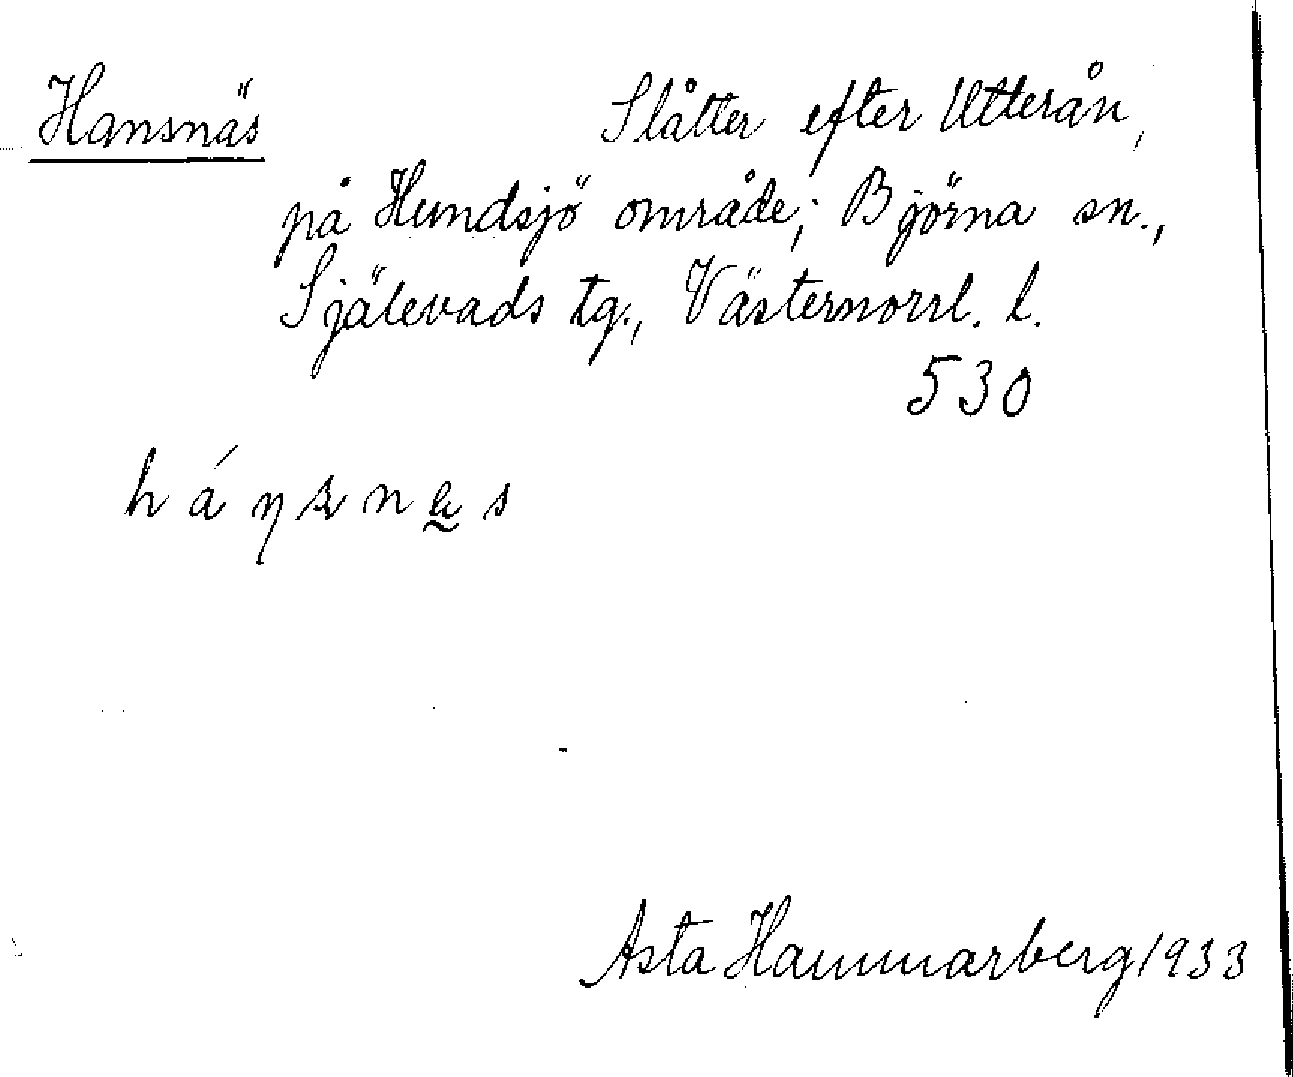 Hansnäs Slåtter efter Utterån,
på Hundsjö område; Björna sn.,
Själevads tg., Västernorrl. l.
530
Asta Hammarberg 1933